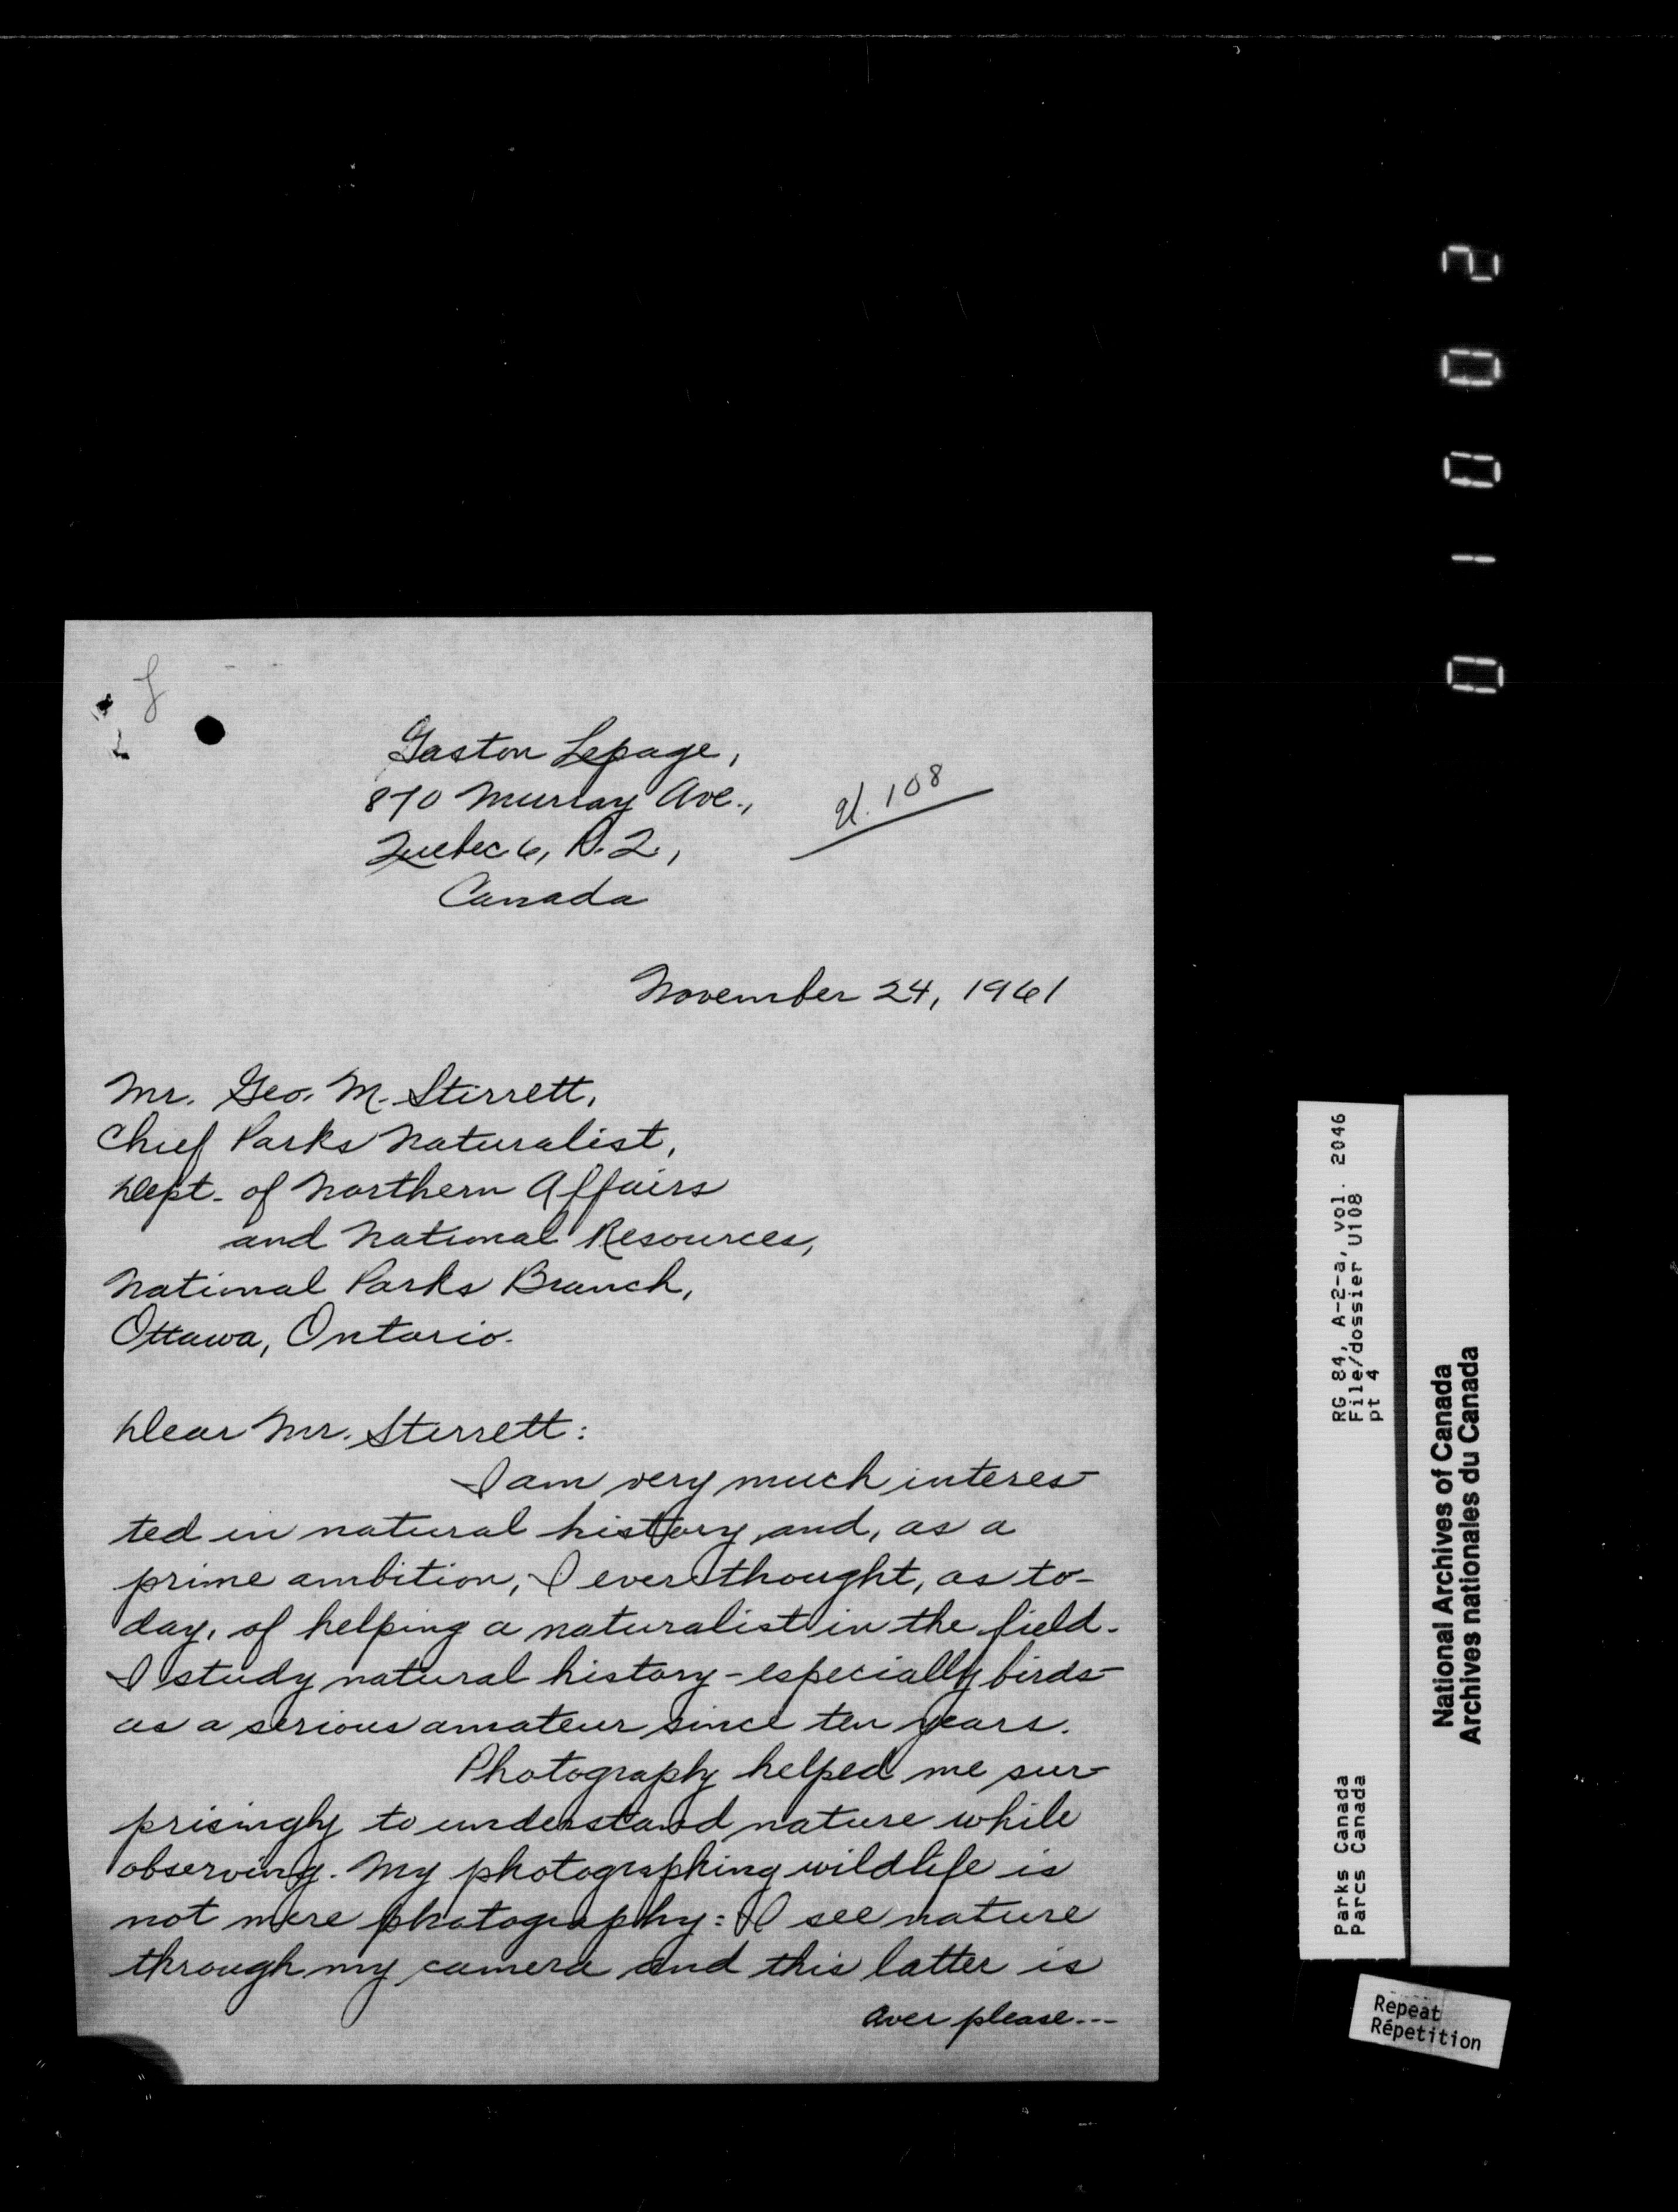 Gaston Lepage,
870 Murray Ave.,
U. 108
Quebec 6, P.Q.,
Canada
November 24, 1961
Mr. Geo. M. Stirrett,
Chief Parks Naturalist,
Dept. of Northern Affairs
and National Resources,
National Parks Branch,
Ottawa, Ontario.
Dear Mr. Stirrett:
I am very much interes-
ted in natural history and, as a
prime ambition, I ever thought, as to-
day, of helping a naturalist in the field.
I study natural history - especially birds -
as a serious amateur since ten years.
Photography helped me sur-
prisingly to understand nature while
observing. My photographing wildlife is
not mere photography: I see nature
through my camera and this latter is
over please---
01002
RG 84, A-2-a, vol. 2046
File/dossier U108
pt 4
Parks Canada
Parcs Canada
National Archives of Canada
Archives nationales du Canada
Repeat
Répetition